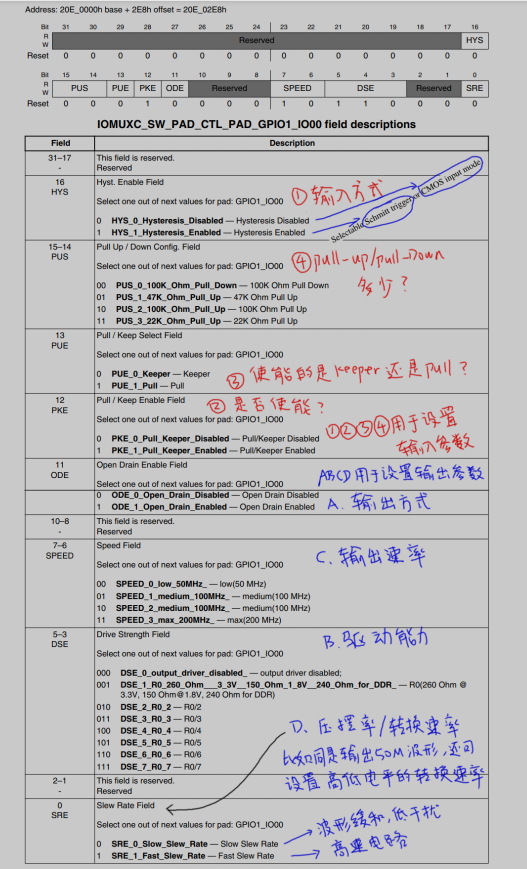 Address: 20E_0000h base + 2E8h offset = 20E_02E8h
Bit 31 30 29 28 27 26 25 24 23 22 21 20 19 18 17 16
R
W
Reserved HYS
Reset 0 0 0 0 0 0 0 0 0 0 0 0 0 0 0 0
Bit 15 14 13 12 11 10 9 8 7 6 5 4 3 2 1 0
R
W
PUS PUE PKE ODE Reserved SPEED DSE Reserved SRE
Reset 0 0 0 1 0 0 0 0 1 0 1 1 0 0 0 0
IOMUXC_SW_PAD_CTL_PAD_GPIO1_IO00 field descriptions
Field Description
31–17 This field is reserved.
- Reserved
16 Hyst. Enable Field
HYS
①输入方式
Select one out of next values for pad: GPIO1_IO00
0 HYS_0_Hysteresis_Disabled — Hysteresis Disabled
1 HYS_1_Hysteresis_Enabled — Hysteresis Enabled
Selectable Schmitt trigger or CMOS input mode
15–14 Pull Up / Down Config. Field
PUS
Select one out of next values for pad: GPIO1_IO00
④pull-up/pull-Down
多少?
00 PUS_0_100K_Ohm_Pull_Down — 100K Ohm Pull Down
01 PUS_1_47K_Ohm_Pull_Up — 47K Ohm Pull Up
10 PUS_2_100K_Ohm_Pull_Up — 100K Ohm Pull Up
11 PUS_3_22K_Ohm_Pull_Up — 22K Ohm Pull Up
13 Pull / Keep Select Field
PUE
Select one out of next values for pad: GPIO1_IO00
0 PUE_0_Keeper — Keeper
1 PUE_1_Pull — Pull
③使能的是keeper还是pull?
12 Pull / Keep Enable Field
PKE
②是否使能?
Select one out of next values for pad: GPIO1_IO00
0 PKE_0_Pull_Keeper_Disabled — Pull/Keeper Disabled
1 PKE_1_Pull_Keeper_Enabled — Pull/Keeper Enabled
①②③④用于设置
输入参数
11 Open Drain Enable Field
ODE
Select one out of next values for pad: GPIO1_IO00
ABCD用于设置输出参数
0 ODE_0_Open_Drain_Disabled — Open Drain Disabled
1 ODE_1_Open_Drain_Enabled — Open Drain Enabled
A. 输出方式
10–8 This field is reserved.
- Reserved
7–6 Speed Field
SPEED
Select one out of next values for pad: GPIO1_IO00
C. 输出速率
00 SPEED_0_low_50MHz_ — low(50 MHz)
01 SPEED_1_medium_100MHz_ — medium(100 MHz)
10 SPEED_2_medium_100MHz_ — medium(100 MHz)
11 SPEED_3_max_200MHz_ — max(200 MHz)
5–3 Drive Strength Field
DSE
B. 驱动能力
Select one out of next values for pad: GPIO1_IO00
000 DSE_0_output_driver_disabled_ — output driver disabled;
001 DSE_1_R0_260_Ohm___3_3V__150_Ohm_1_8V__240_Ohm_for_DDR_ — R0(260 Ohm @
3.3V, 150 Ohm@1.8V, 240 Ohm for DDR)
010 DSE_2_R0_2 — R0/2
011 DSE_3_R0_3 — R0/3
100 DSE_4_R0_4 — R0/4
101 DSE_5_R0_5 — R0/5
110 DSE_6_R0_6 — R0/6
111 DSE_7_R0_7 — R0/7
D. 压摆率/转换速率
比如同是输出50M波形,还可
设置高低电平的转换速率
2–1 This field is reserved.
- Reserved
0 Slew Rate Field
SRE
Select one out of next values for pad: GPIO1_IO00
0 SRE_0_Slow_Slew_Rate — Slow Slew Rate
1 SRE_1_Fast_Slew_Rate — Fast Slew Rate
波形缓和,低干扰
高速电路